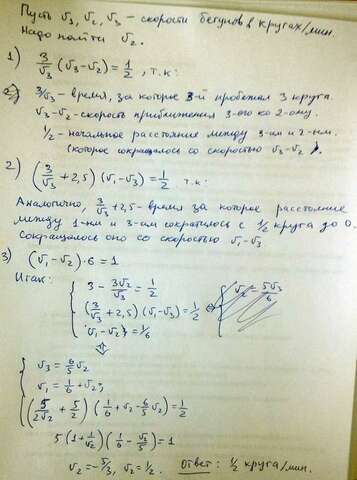 Пусть v₁, v₂, v₃ - скорости бегунов в кругах/мин.
Надо найти v₂.
1) 3/v₃ (v₃-v₂) = 1/2, т.к:
3/v₃ - время, за которое 3-й пробежал 3 круга.
v₃-v₂ - скорость приближения 3-ого ко 2-ому.
1/2 - начальное расстояние между 3-им и 2-ым.
(которое сокращалось со скоростью v₃-v₂).
2) (3/v₃ + 2,5) (v₁-v₃) = 1/2 т.к:
Аналогично, 3/v₃ + 2,5 - время за которое расстояние
между 1-ым и 3-им сократилось с 1/2 круга до 0.
Сокращалось оно со скоростью v₁-v₃
3) (v₁-v₂)·6 = 1
Итак: { 3 - 3v₂/v₃ = 1/2
(3/v₃ + 2,5)(v₁-v₃) = 1/2 ⇔ { v₂ = 5v₃/6
v₁-v₂ = 1/6
⇕
{ v₃ = 6/5 v₂
v₁ = 1/6 + v₂
(5/2v₂ + 5/2) (1/6 + v₂ - 6/5 v₂) = 1/2
5(1 + 1/v₂)(1/6 - v₂/5) = 1
v₂ = -5/3, v₂ = 1/2. Ответ: 1/2 круга/мин.